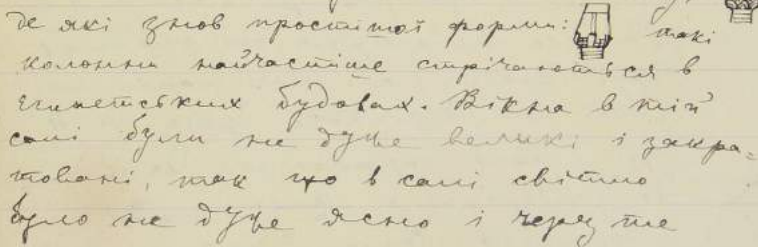 де які знов простішої форми: такі
колонни найчастіше стрічаються в
египетських будовах. Вікна в тій
салі були не дуже великі і закра=
товані, так що в салі світло
було не дуже ясно і через те